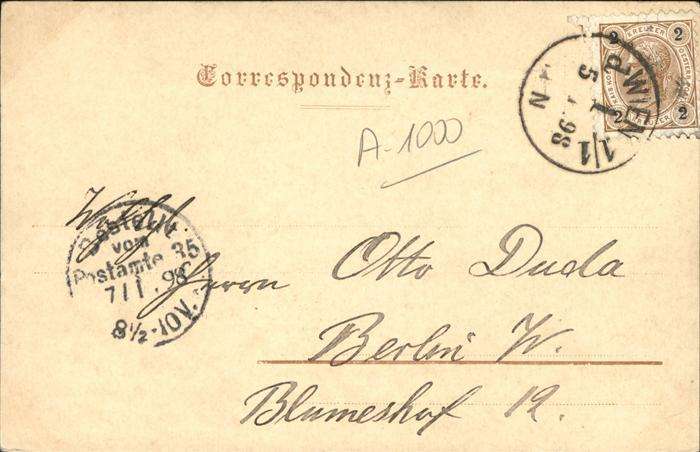 2 KREUZER 2
2 2
Correspondenz-Karte.
WIEN 1/1
5 1 98
N
A-1000
Wohlgb.
Bestellt
vom
Postamte 35
7/1.98
8½-10V.
Herrn Otto Duda
Berlin W.
Blumeshof 12.